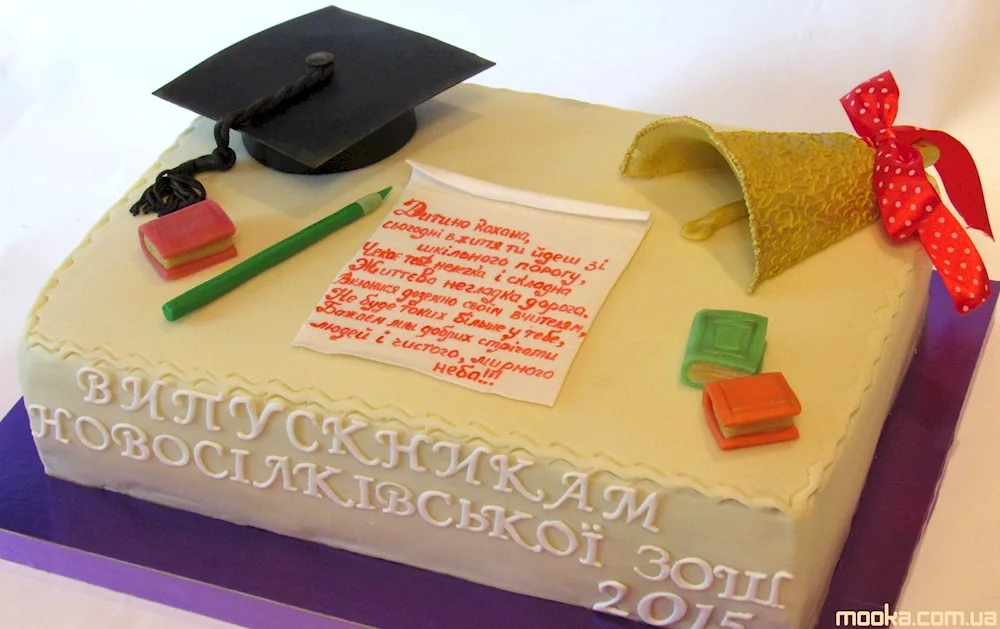 Дитино кохана,
сьогодні в життя ти йдеш зі
шкільного порогу,
Чекає тебе нелегка і складна
Життєва негладка дорога.
Вклонися доземно своїм вчителям,
Не буде таких більше у тебе,
Бажаєм між добрих стрічати
людей і чистого, мирного
неба!!!
ВИПУСКНИКАМ
НОВОСІЛКІВСЬКОЇ ЗОШ
2015
mooka.com.ua